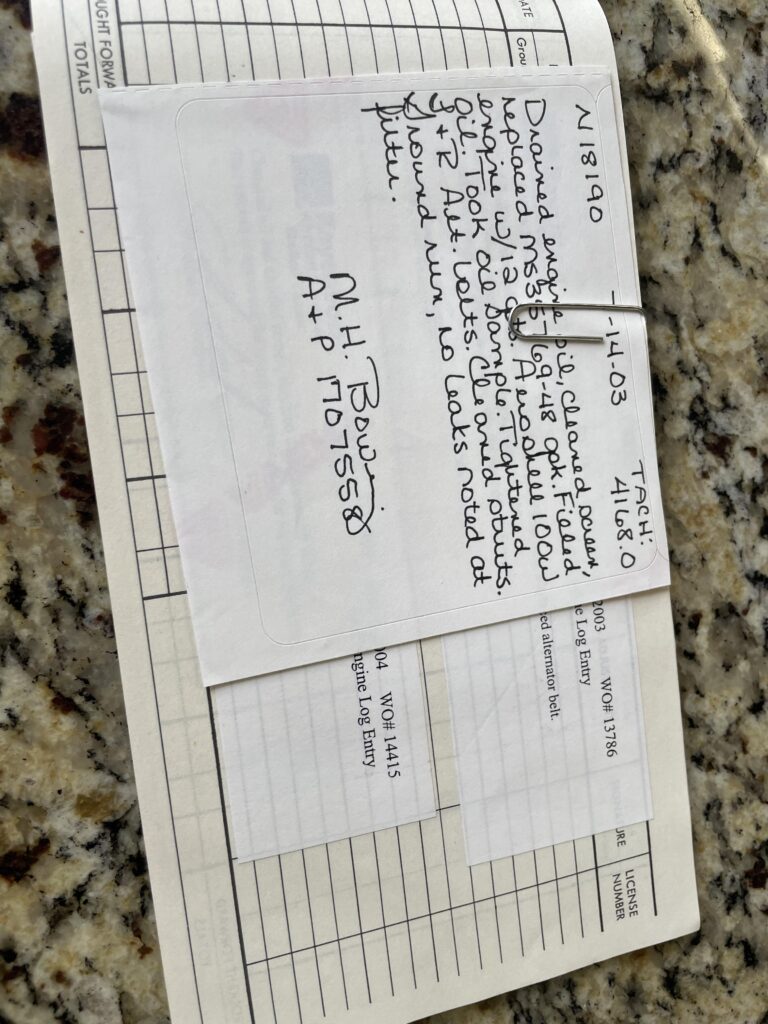 N18190
-14-03
TACH:
4168.0
Drained engine oil, cleaned screen,
replaced MS35769-48 gsk. Filled
engine w/12 qts. Aeroshell 100W
oil. Took oil sample. Tightened
+ R Alt. bolts. Cleaned struts.
Ground run, no leaks noted at
filter.
M.H.
A+P 1707558
2003 WO# 13786
e Log Entry
ed alternator belt.
004 WO# 14415
ngine Log Entry
UGHT FORWA
TOTALS
ATE
Grou
URE
LICENSE
NUMBER